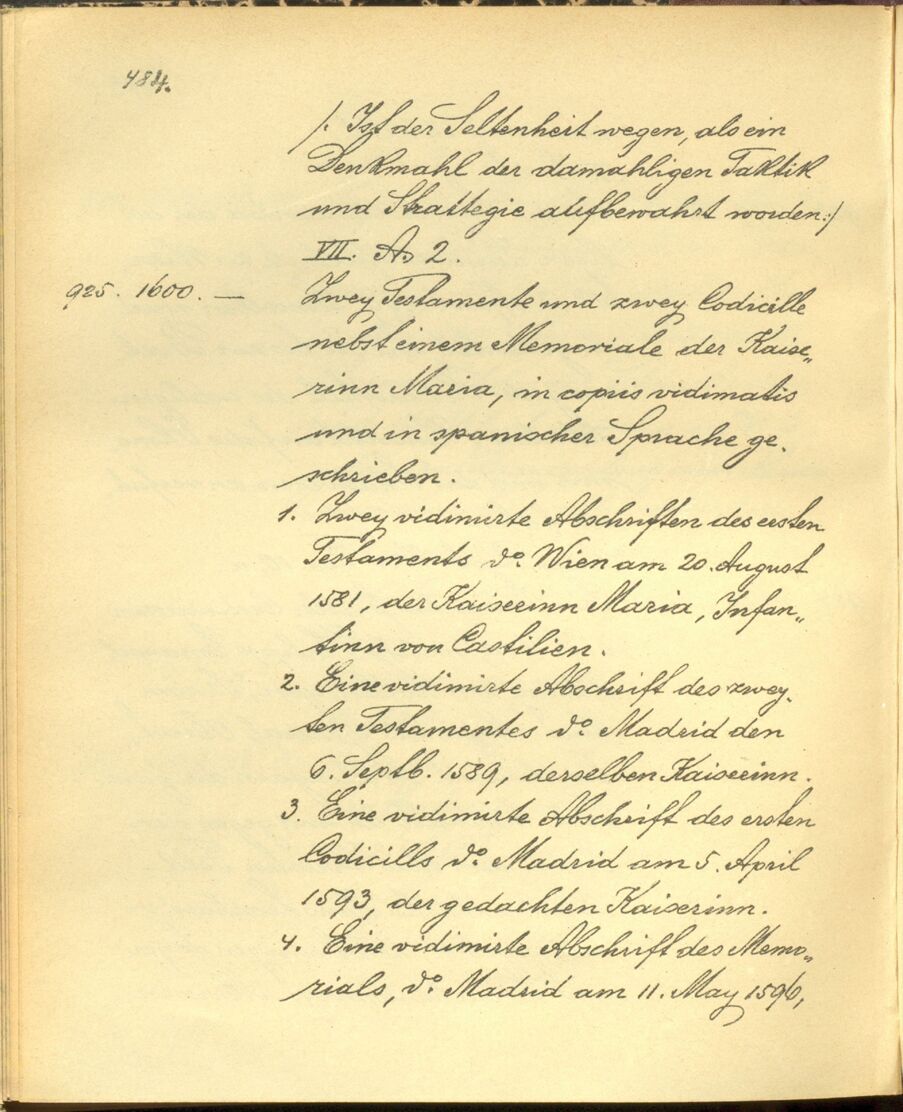 484.
/: Ist der Seltenheit wegen, als ein
Denkmahl der damahligen Taktik
und Strattegie aufbewahrt worden:/
VII. A. 2.
925. 1600. — Zwey Testamente und zwey Codicille
nebst einem Memoriale der Kaise„
rinn Maria, in copiis vidimatis
und in spanischer Sprache ge-
schrieben.
1. Zwey vidimirte Abschriften des ersten
Testaments do. Wien am 20. August
1581, der Kaiserinn Maria, Infan„
tinn von Castilien.
2. Eine vidimirte Abschrift des zwey-
ten Testamentes do. Madrid den
6. Septb. 1589, derselben Kaiserinn.
3. Eine vidimirte Abschrift des ersten
Codicills do. Madrid am 5. April
1593, der gedachten Kaiserinn.
4. Eine vidimirte Abschrift des Memo„
rials, do. Madrid am 11. May 1596,